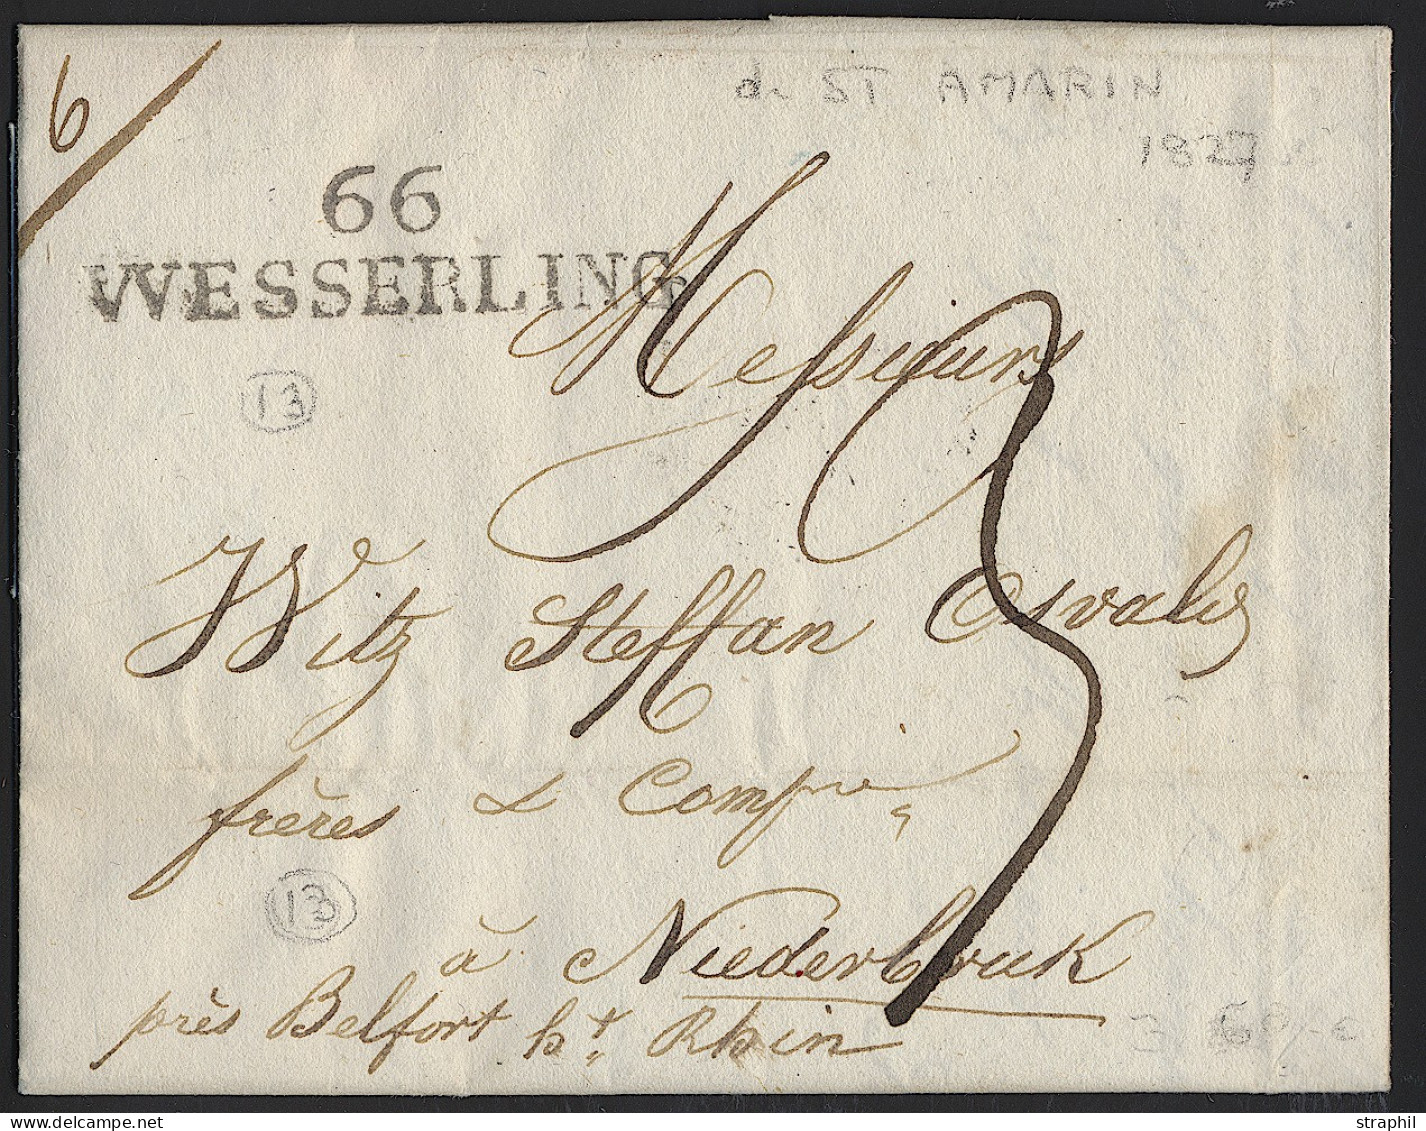 6
de ST AMARIN
1827
66
WESSERLING
13
Messieurs
3
Witz Steffan Osvald
frères & Compie
13
à Niederbruk
près Belfort ht Rhin
3
straphil